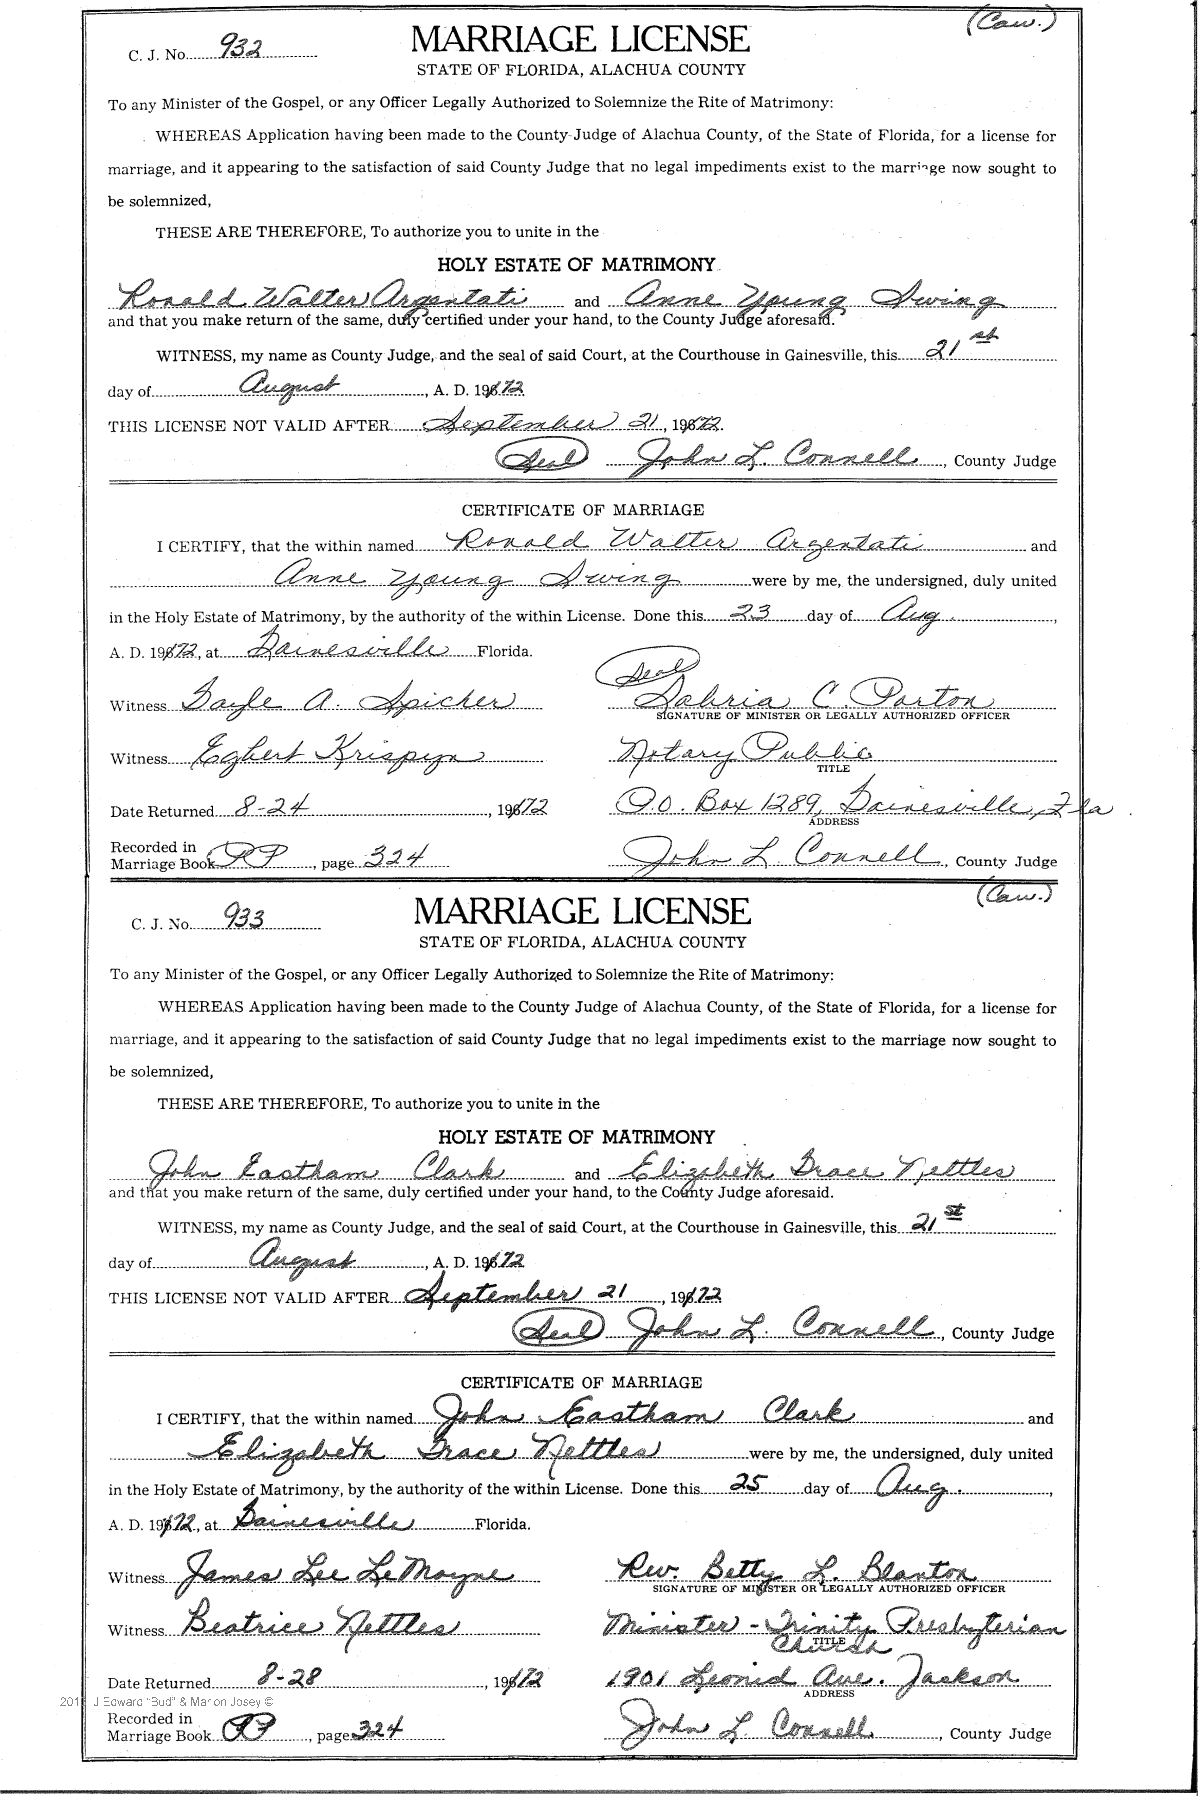 (Cau.)
C. J. No. 932 MARRIAGE LICENSE
STATE OF FLORIDA, ALACHUA COUNTY
To any Minister of the Gospel, or any Officer Legally Authorized to Solemnize the Rite of Matrimony:
WHEREAS Application having been made to the County Judge of Alachua County, of the State of Florida, for a license for
marriage, and it appearing to the satisfaction of said County Judge that no legal impediments exist to the marriage now sought to
be solemnized,
THESE ARE THEREFORE, To authorize you to unite in the
HOLY ESTATE OF MATRIMONY
Ronald Walter Argentati and Anne Young Irving
and that you make return of the same, duly certified under your hand, to the County Judge aforesaid.
WITNESS, my name as County Judge, and the seal of said Court, at the Courthouse in Gainesville, this 21st
day of August, A. D. 1972
THIS LICENSE NOT VALID AFTER September 21, 1972.
(Seal) John L. Connell, County Judge
CERTIFICATE OF MARRIAGE
I CERTIFY, that the within named Ronald Walter Argentati and
Anne Young Irving were by me, the undersigned, duly united
in the Holy Estate of Matrimony, by the authority of the within License. Done this 23 day of Aug.,
A. D. 1972, at Gainesville Florida.
(Seal)
Witness Gayle A. Spicher C. Parton
SIGNATURE OF MINISTER OR LEGALLY AUTHORIZED OFFICER
Witness Egbert Krispyn Notary Public
TITLE
Date Returned 8-24, 1972 P.O. Box 1289, Gainesville, Fla
ADDRESS
Recorded in
Marriage Book PP, page 324 John L. Connell, County Judge
(Cau.)
C. J. No. 933 MARRIAGE LICENSE
STATE OF FLORIDA, ALACHUA COUNTY
To any Minister of the Gospel, or any Officer Legally Authorized to Solemnize the Rite of Matrimony:
WHEREAS Application having been made to the County Judge of Alachua County, of the State of Florida, for a license for
marriage, and it appearing to the satisfaction of said County Judge that no legal impediments exist to the marriage now sought to
be solemnized,
THESE ARE THEREFORE, To authorize you to unite in the
HOLY ESTATE OF MATRIMONY
John Eastham Clark and Elizabeth Grace Nettles
and that you make return of the same, duly certified under your hand, to the County Judge aforesaid.
WITNESS, my name as County Judge, and the seal of said Court, at the Courthouse in Gainesville, this 21st
day of August, A. D. 1972
THIS LICENSE NOT VALID AFTER September 21, 1972
(Seal) John L. Connell, County Judge
CERTIFICATE OF MARRIAGE
I CERTIFY, that the within named John Eastham Clark and
Elizabeth Grace Nettles were by me, the undersigned, duly united
in the Holy Estate of Matrimony, by the authority of the within License. Done this 25 day of Aug.,
A. D. 1972, at Gainesville Florida.
Witness James Lee LeMoyne Rev. Betty L. Blanton
SIGNATURE OF MINISTER OR LEGALLY AUTHORIZED OFFICER
Witness Beatrice Nettles Minister - Trinity Presbyterian
Church TITLE
Date Returned 8-28, 1972 1901 Leonid Ave. Jackson
ADDRESS
J Edward "Bud" & Marion Josey ©
Recorded in
Marriage Book PP, page 324 John L. Connell, County Judge